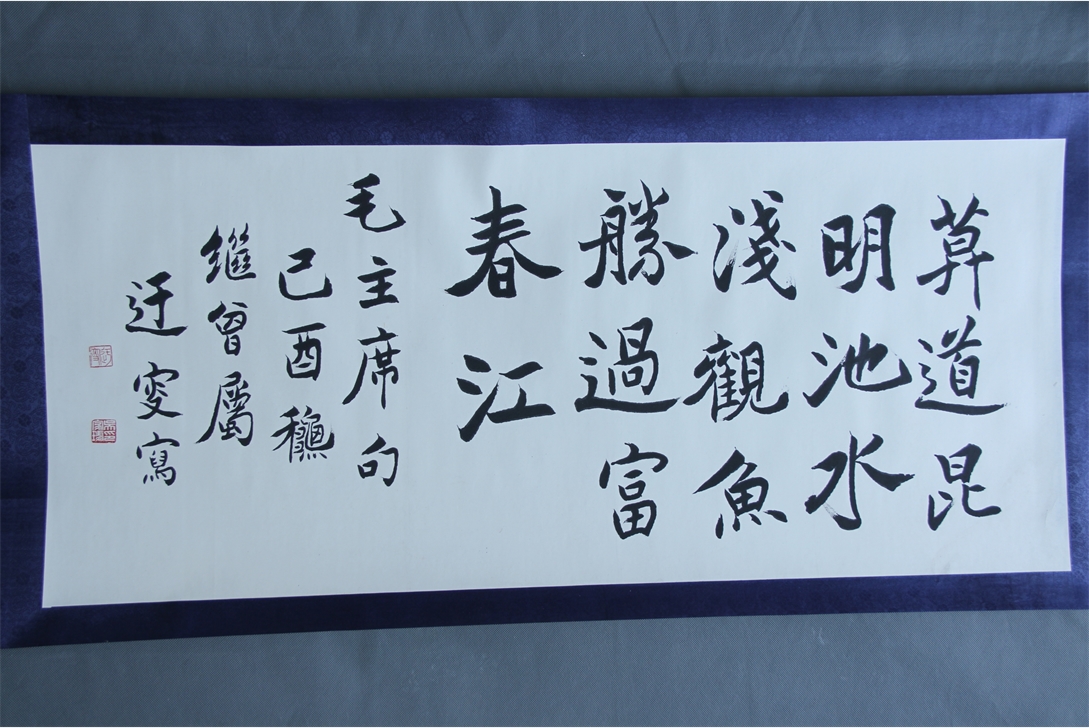 莫道昆
明池水
淺觀魚
勝過富
春江
毛主席句
己酉龝
繼曾屬
迂叜寫